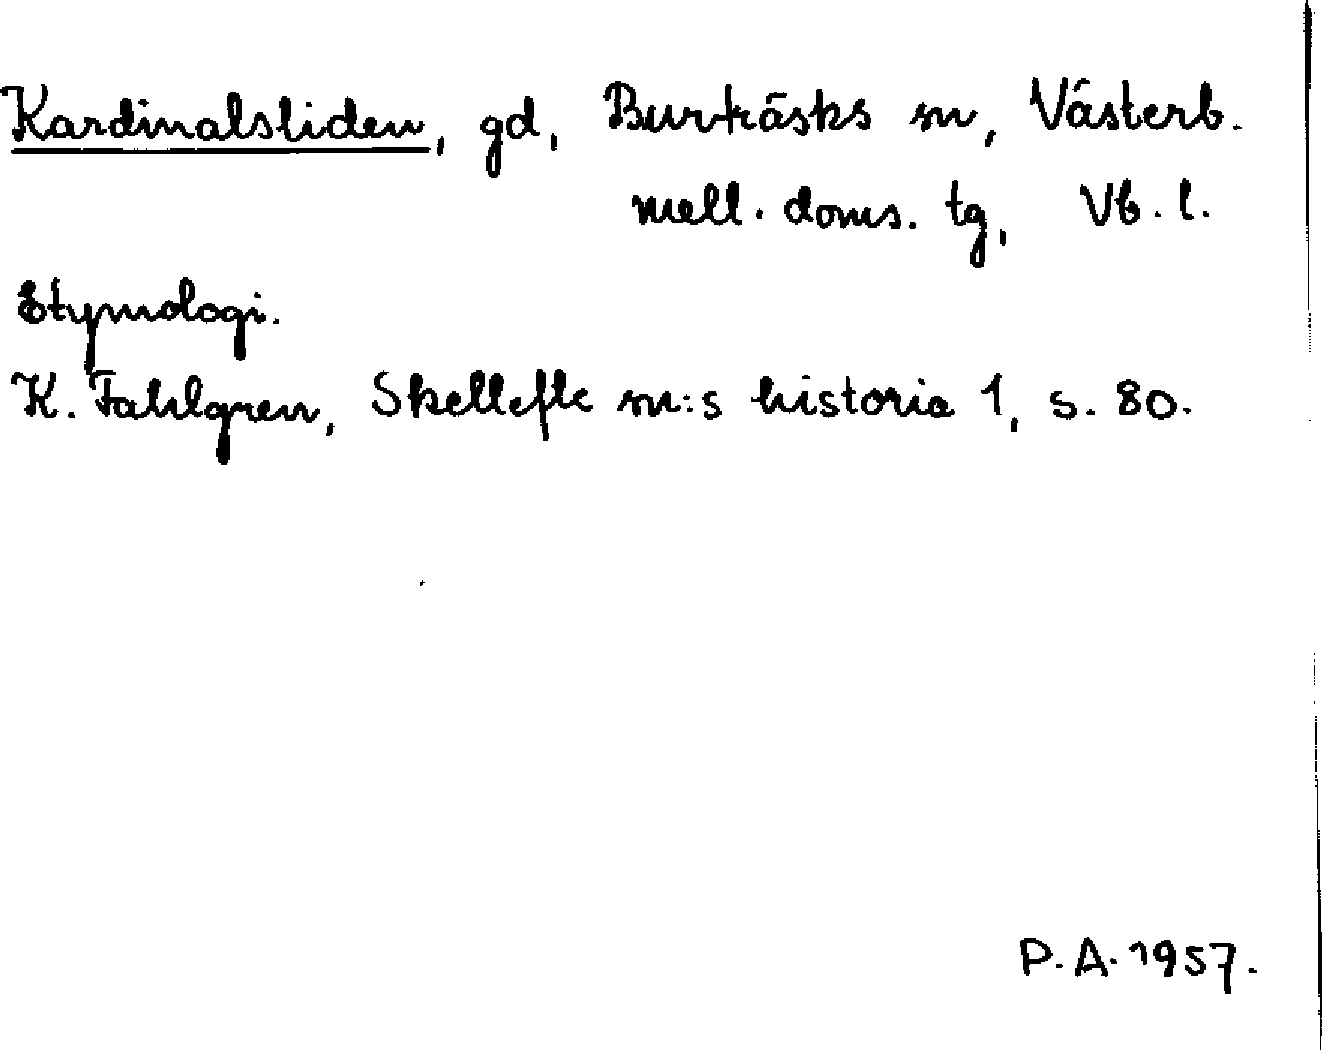 Kardinalsliden, gd, Burträsks sn, Västerb.
mell. doms. tg, Vb. l.
Etymologi.
K. Fahlgren, Skellefte sn:s historia 1, s. 80.
P. A. 1957.